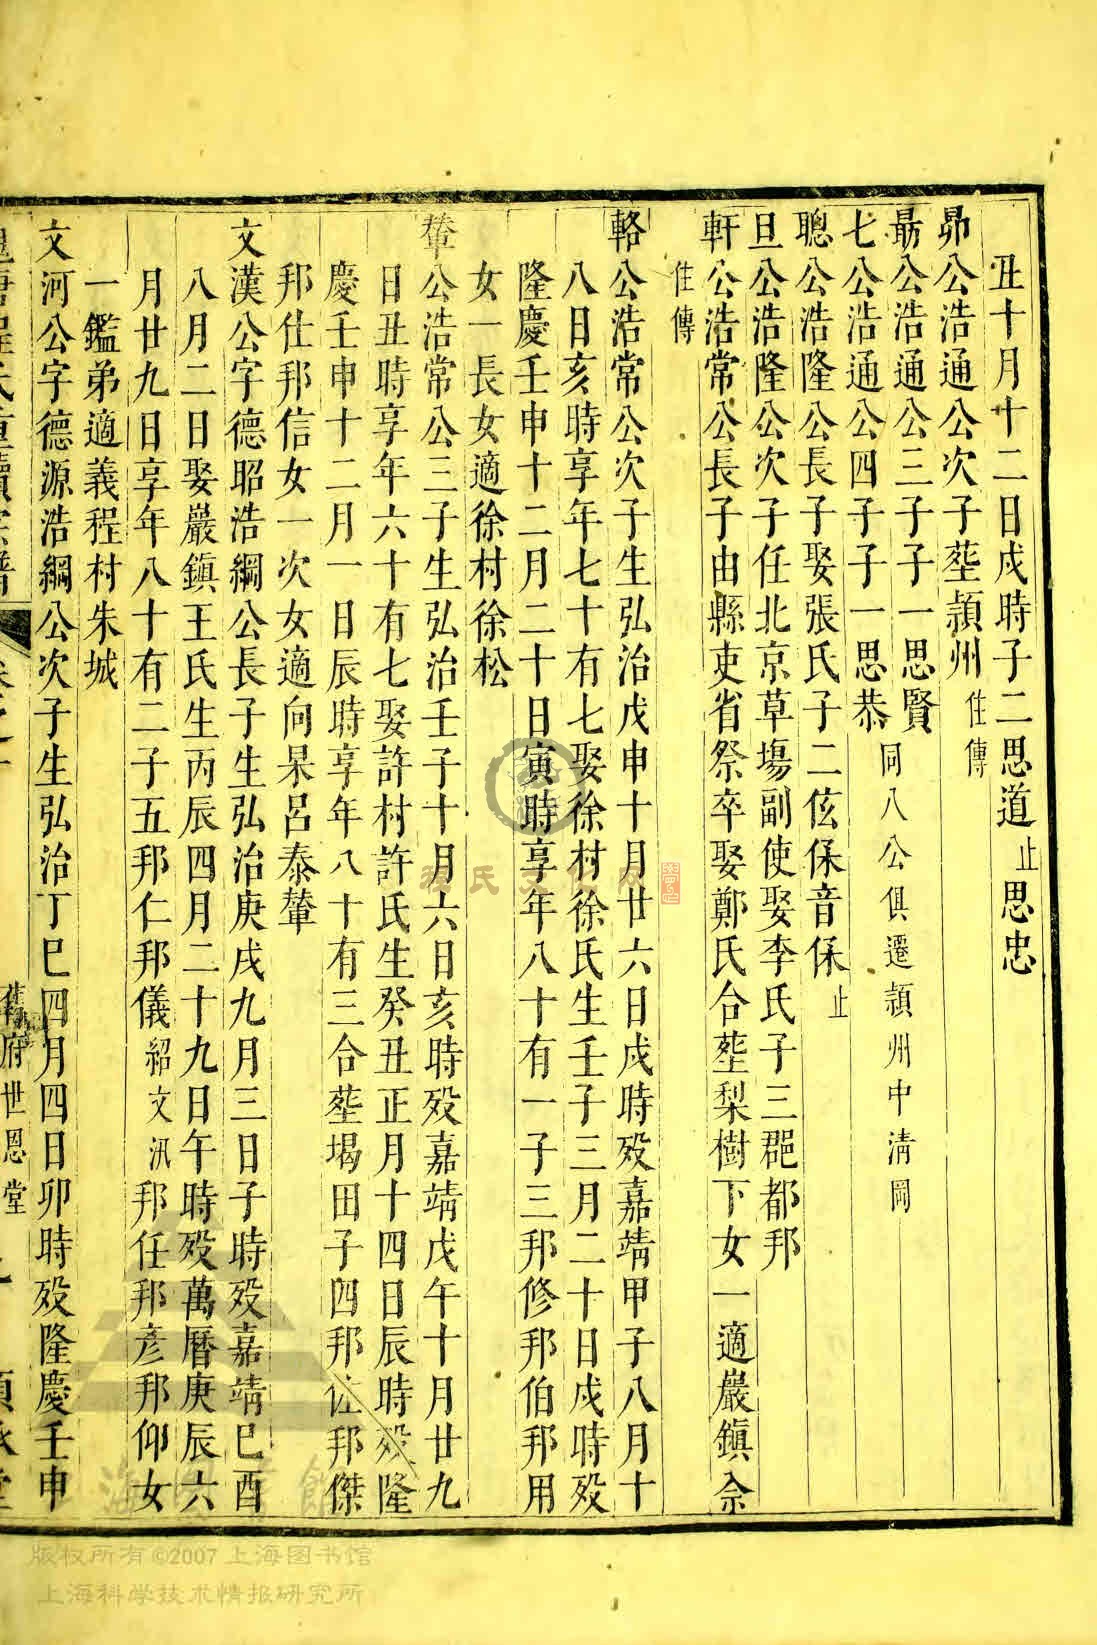 丑十月十二日戌時子二思道止思忠
昴公浩通公次子塟頴州住傳
最公浩通公三子子一思賢
七公浩通公四子子一思恭同八公俱遷頴州中清岡
聰公浩隆公長子娶張氏子二伭保音保止
旦公浩隆公次子任北京草塲副使娶李氏子三郒都邦
軒公浩常公長子由縣吏省祭卒娶鄭氏合塟梨樹下女一適巖鎮佘
住傳
輅公浩常公次子生弘治戊申十月廿六日戌時歿嘉靖甲子八月十
八日亥時享年七十有七娶徐村徐氏生壬子三月二十日戌時歿
隆慶壬申十二月二十日寅時享年八十有一子三邦修邦伯邦用
女一長女適徐村徐松
輦公浩常公三子生弘治壬子十月六日亥時歿嘉靖戊午十月廿九
日丑時享年六十有七娶許村許氏生癸丑正月十四日辰時歿隆
慶壬申十二月一日辰時享年八十有三合塟堨田子四邦佐邦傑
邦仕邦信女一次女適向杲呂泰輦
文漢公字德昭浩綱公長子生弘治庚戌九月三日子時歿嘉靖巳酉
八月二日娶巖鎮王氏生丙辰四月二十九日午時歿萬曆庚辰六
月廿九日享年八十有二子五邦仁邦儀紹文汛邦任邦彥邦仰女
一鑑弟適義程村朱城
文河公字德源浩綱公次子生弘治丁巳四月四日卯時歿隆慶壬申
府世恩堂
程氏文化网
上海图书馆
版权所有©2007上海图书馆
上海科学技术情报研究所